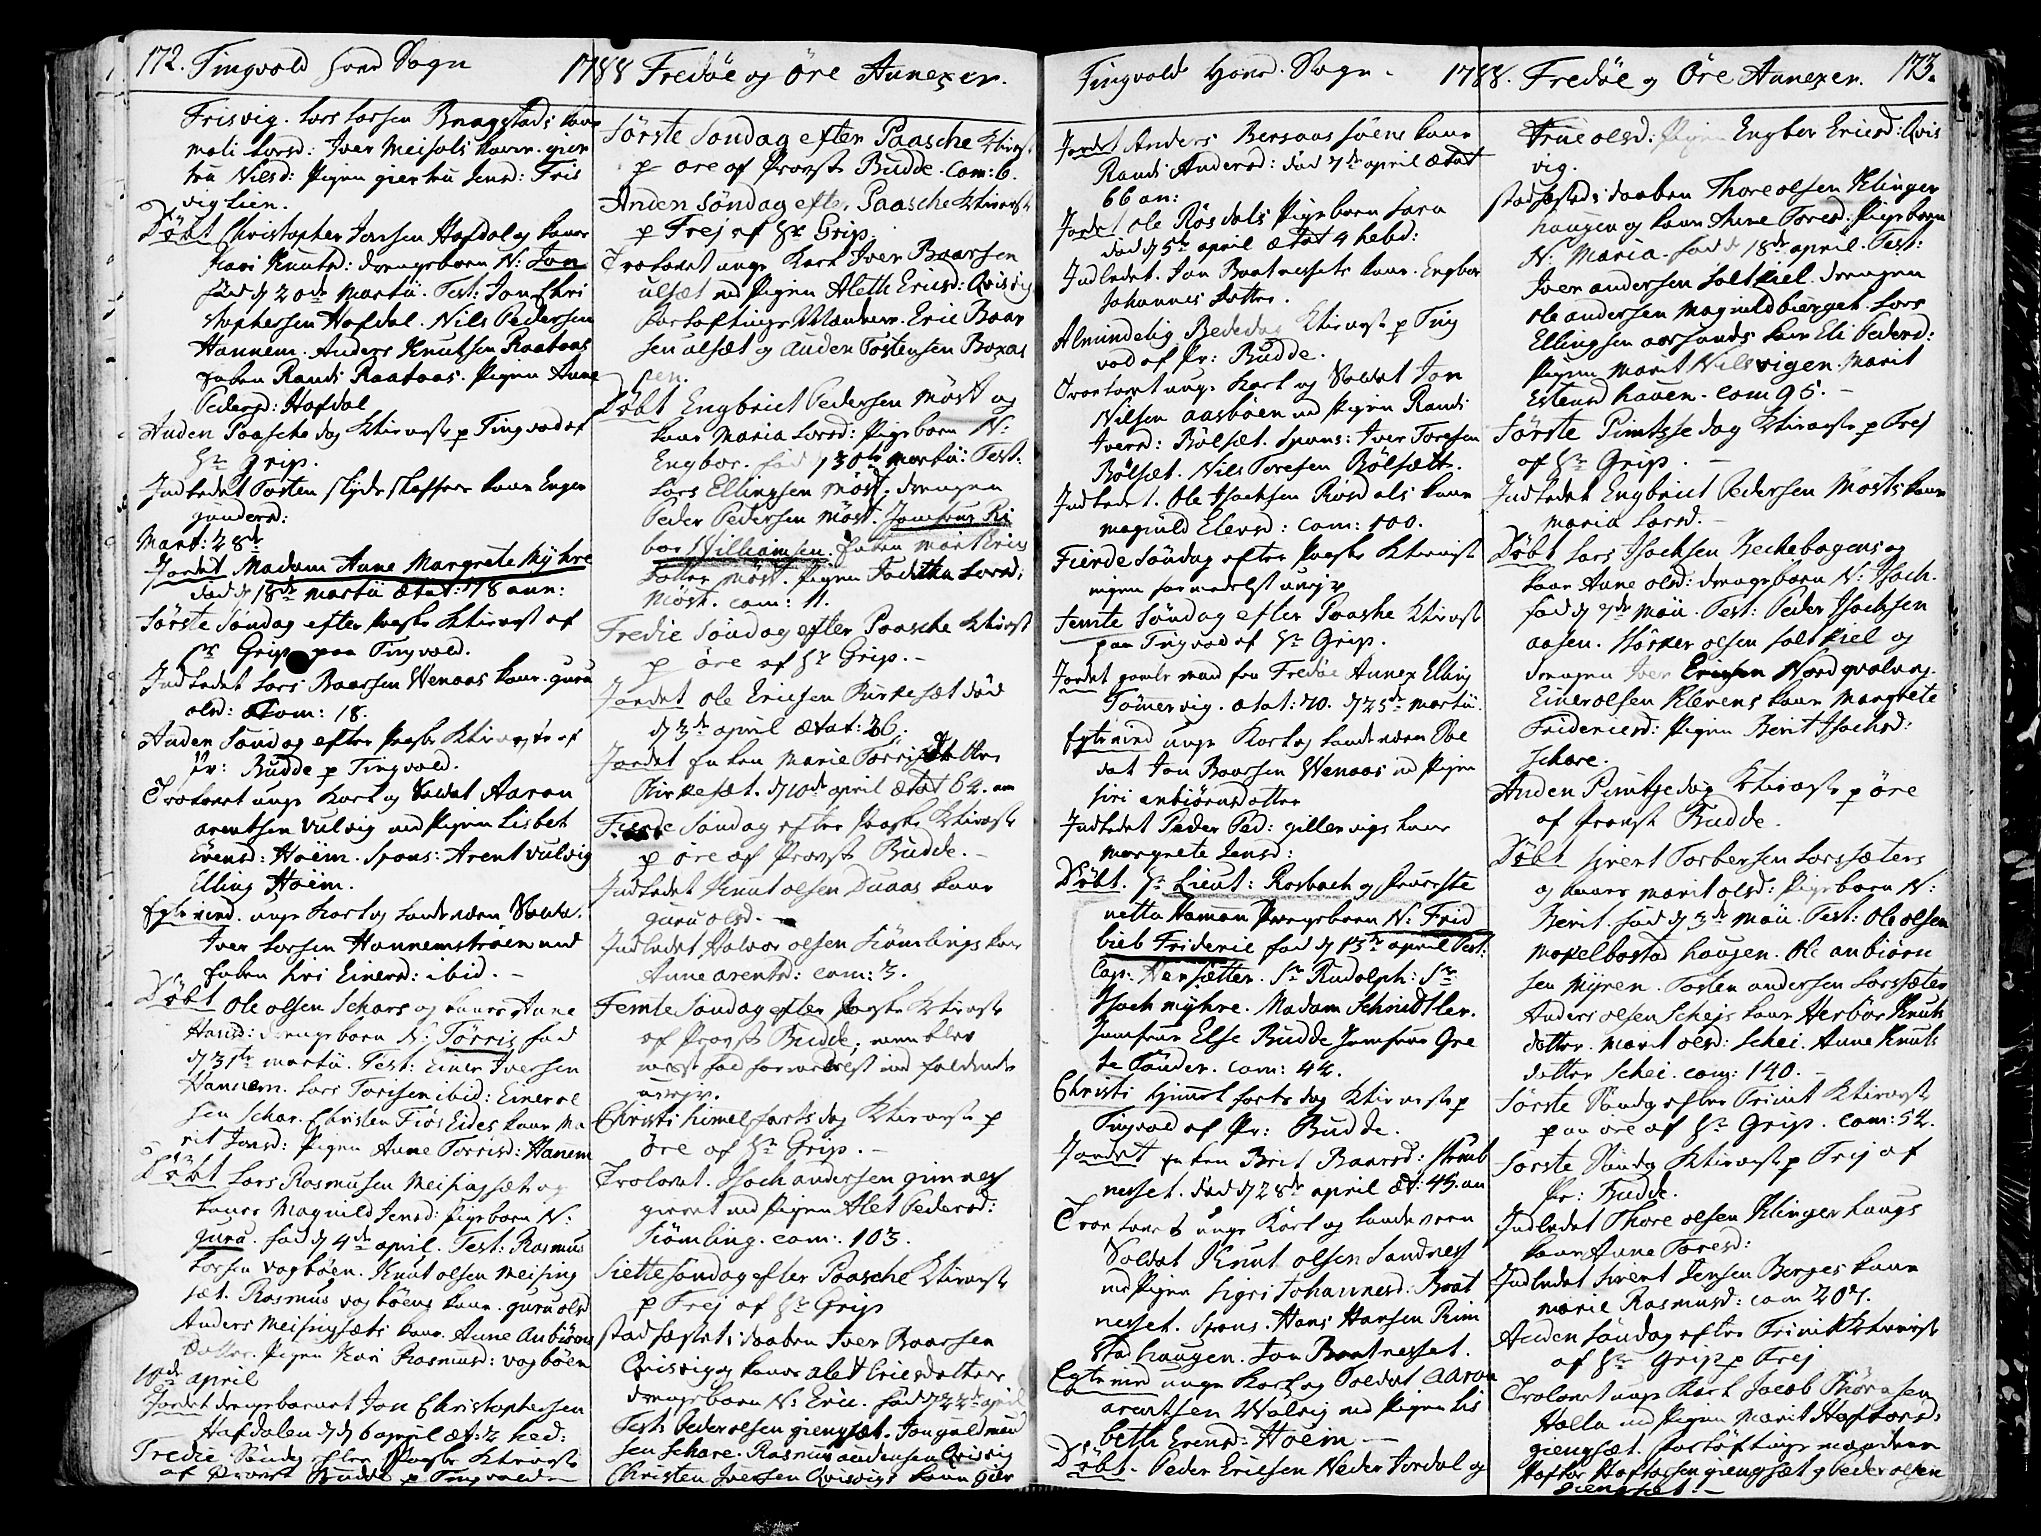 172. Tingvold hoved Sogn
1788 Fredøe og Öre Annexer.
Frisvig. Lars Larsen Bragstads kone
mali Larsd: Iver Meisals kone. gier
tru Nilsd: Pigen giertru Jensd: Fris
viglien.
Døbt Christopher Jonsen Hafdal og kones
Kari Knutsd: drengebarn N: Jon
fød d 20de Martii. Test: Jon Chri
stophersen Hafdal. Nils Pedersen
Hannem. Anders Knutsen Raataas
Enken Randi Raataas. Pigen Anne
Pedersd: Hafdal
Anden Paasche dag Tieneste p Tingvold af
Hr Grip.
Indledet Tosten skydsskaffers kone Inge
gundersd:
Mart: 28de
Jordet Madam Anne Margrete Myhre
død d 18de martii ætat: 78 ann:
Første Søndag efter Paaske Tieneste af
Hr Grip paa Tingvold.
Indledet Lars Baarsen Wenaas kone guru
olsd: Com: 18.
Anden Søndag efter Paaske Tieneste af
Pr: Budde p Tingvold.
Trolovet unge Karl og Soldat Aaron
arentsen Vulvig med Pigen Lisbet
Erensd: Hoëm. Spons: Arent Vulvig
Elling Hoëm.
Egteviet unge Karl og Landeværn Soldat.
Iver Larsen Hannemstrøen med
Enken Siri Einersd: ibid.
Døbt Ole olsen Schars og kones Anne
Hansd: drengebarn N: Törris fød
d 31te martii. Test: Einer Iversen
Hannem. Lars Torissen ibid: Einer ol
sen Schar. Christen Fiøseides kone Ma
rit Jonsd: Pigen Anne Torrisd: Hanem
Døbt Lars Rasmusen Meisingsæt og
kones Magnild Jensd: Pigebarn N:
Guru. fød d 4de april. Test: Rasmus
Larsen vagbøen. Knut olsen Meising
sæt. Rasmus vagbøens kone. guru olsd
Anders Meisingsæts kone. Anne Anbiørns
datter. Pigen Kari Rasmusd: vagbøen
10de april
Jordet drengebarnet Jon Christophersen
Hafdalen død d 6 april æt: 2 hed:
Tredie Søndag efter Paaske Tieneste
af Provst Budde p Tingvold.
Første Søndag efter Paasche Tieneste
p öre af Provst Budde. Com: 6.
Anden Søndag efter Paasche Tieneste
p Frej af Hr Grip.
Trolovet unge Karl Iver Baarsen
ulsæt med Pigen Aleth Ericsd: Qvisvig
Forloftings Mændene. Eric Baar
sen ulsæt og Auden Tostensen Boxas
pen.
Døbt Engbrict Pedersen Møst og
kones Maria Larsd: Pigebarn N:
Engbor. fød d 30te martii: Test:
Lars Ellingsen Møst. drengen
Peder Pedersen Møst. Jomfrue Ri
bor Williamsen. Enken Marit Erics
datter Møst. Pigen Jaditta Larsd:
Møst. com: 11.
Tredie Søndag efter Paasche Tieneste
p öre af Hr Grip.
Jordet Ole Ericsen Kirkesæt død
d 3de april ætat: 26.
Jordet Enken Marie Torris datter
Kirkesæt. d 10de april ætat 64. an
Fierde Søndag efter Paaske Tieneste
p öre af Provst Budde.
Indledet Knut olsen Duaas kone
guru olsd.
Indledet Halvor olsen Lømlings kone
Anne arentsd: com: 3.
Femte Søndag efter Paaske Tieneste
af Provst Budde; men blev
messefald formedelst ind faldende
uvejr.
Christi himelfarts dag Tieneste p
öre af Hr Grip.
Trolovet. Isach andersen gimnes
gieret med Pigen Alet Pedersd:
Lømling. com: 103.
Siette Søndag efter Paasche Tieneste
p Frej af Hr Grip
Stadfæstet: daaben Iver Baarsen
Qvisvig og kones alet Ericsdatter
drengebarn N: Eric. fød d 22de april
Test: Peder olsen giengsæt. Jon guldmund
sen Schare. Rasmus audensen Qvisvig
Christen Iversen Qvisvigs kone gier
Tingvolds Hoved Sogn. 1788. Fredøe og Öre Annexer. 173.
Jordet Anders Bersaas søens kone
Randi Andersd: død 7de april ætat
66 an:
Jordet Ole Rösdals Pigebarn Sara
død d 5te april ætat 4 hebd:
Indledet. Jon Baatnessets kone. Engbor
Johannes datter.
Almindelig Bededag Tieneste p Ting
vod af Pr: Budde.
Trolovet unge Karl og Soldat Jon
Nilsen aasbøen med Pigen Randi
Iversd: Bölsæt. Spons: Iver Toresen
Bölsæt. Nils Toresen Bölsætt.
Indledet. Ole Isachsen Rösdals kone
magnild Elensd: com: 100.
Fierde Søndag efter Paaske Tieneste
ingen formedelst uvejr
Femte Søndag efter Paaske Tieneste
paa Tingvod af Hr Grip.
Jordet gamle mand fra Fredøe Annex Elling
Tömervig. ætat: 70. d 25de martii.
Egteviet unge Karl og Landeværn Sol
dat Jon Baarsen Wenaas med Pigen
Siri anbiörnsdatter
Indledet Peder Ped: gillervigs kone
margrete Jensd:
Døbt. Hr Lieut: Rosbach og Frue
netta Haman Drengebarn N: Frid
lieb Frideric fød d 13de april Test:
Cap: Hersætter. Sr Rudolph: Sr
Isach myhre. Madam Schmidtler.
Jomfrue Else Budde Jomfrue Gre
te Tönder. com: 44.
Christi Himelfarts dag Tieneste p
Tingvod af Pr: Budde.
Jordet Enken Brit Baarsd: Strand
nesset. død d 28de april æt: 43. an
Trolovet unge Karl og Landeværn
Soldat Knut olsen Sandnest
med Pigen Sigri Johannesd: Baat
nesset. Spons. Hans Hansen Rim
stad haugen. Jon Baatnesset.
Egteviet unge Karl og Soldat Aaron
arentsen Wolvig med Pigen Lis
beth Erensd: Hoëm
Døbt. Peder Ericsen Neder Jordal og
true olsd: Pigen Engber Ericsd: Qvis
vig.
Stadfæsted: daaben Thore olsen Klinger
haugen og kone Anne Toresd: Pigebarn
N: Maria. fød d 18de april. Test:
Iver andersen Saltkiel. drengen
Ole andersen Magnildbierget. Lars
Ellingsen aarsunds kone Eli Pedersd:
Pigen Marit Nilsvigen. Marit
Estensd hauen. com 95.
Første Pintzse dag Tieneste p Frej
af Hr Grip.
Indledet Engbrict Pedersen Møsts kone
maria Larsd.
Døbt Lars Isachsen Beckebagens og
kone Anne olsd: drengebarn N: Isach.
fød d 7de Maii. Test: Peder Isachsen
aasen. Størker olsen Saltkiel og
drengen Iver Ericsen Nordgvalvag.
Einer olsen Klevens kone Margrete
Fridericsd: Pigen Berit Isachsd:
Schare.
Anden Pintzedag Tieneste p öre
af Provst Budde.
Døbt Sivert Torbersen Larssæters
og kones Marit olsd: Pigebarn N:
Berit. fød d 3de Maii. Test: Ole olsen
Moxelbostad haugen. Ole anbiörn
sen Myren. Tosten andersen Larssæter
Anders olsen Scheis kone Herbor Knuts
datter. Marit olsd: Schei. Anne Knuts
datter Schei. com: 140.
Første Søndag efter Trinit Tieneste
paa öre af Hr Grip. com: 54.
Første Søndag Tieneste p Frej af
Pr: Budde.
Indledet Thore olsen Klinger haugs
kone Anne Toresd:
Indledet Sivert Jensen Berges kone
marie Rasmusd: com 207.
Anden Søndag efter Trinit Tieneste
af Hr Grip p Frej
Trolovet unge Karl Jacob Biörnsen
Halla med Pigen Marit Haftorsd:
giengsæt. Forløftings mændene
Haftor Haftorsen giengsæt og Peder olsen
giengset.